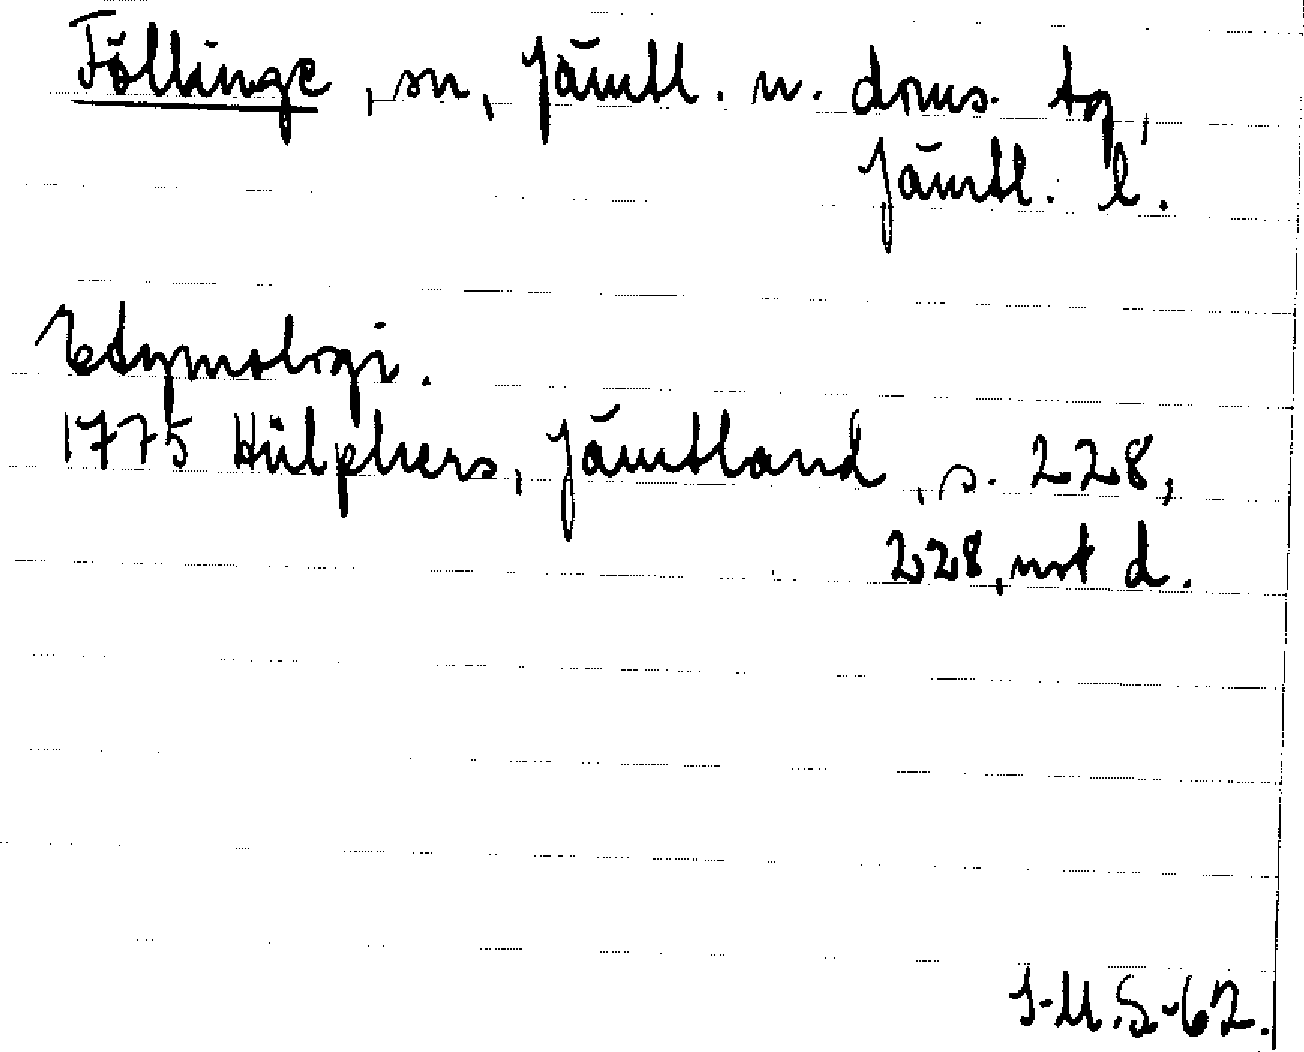 Föllinge, sn, Jämtl. n. doms. tg,
Jämtl. l.
Etymologi.
1775 Hülphers, Jämtland, s. 228,
228, not d.
I-M.S-62.